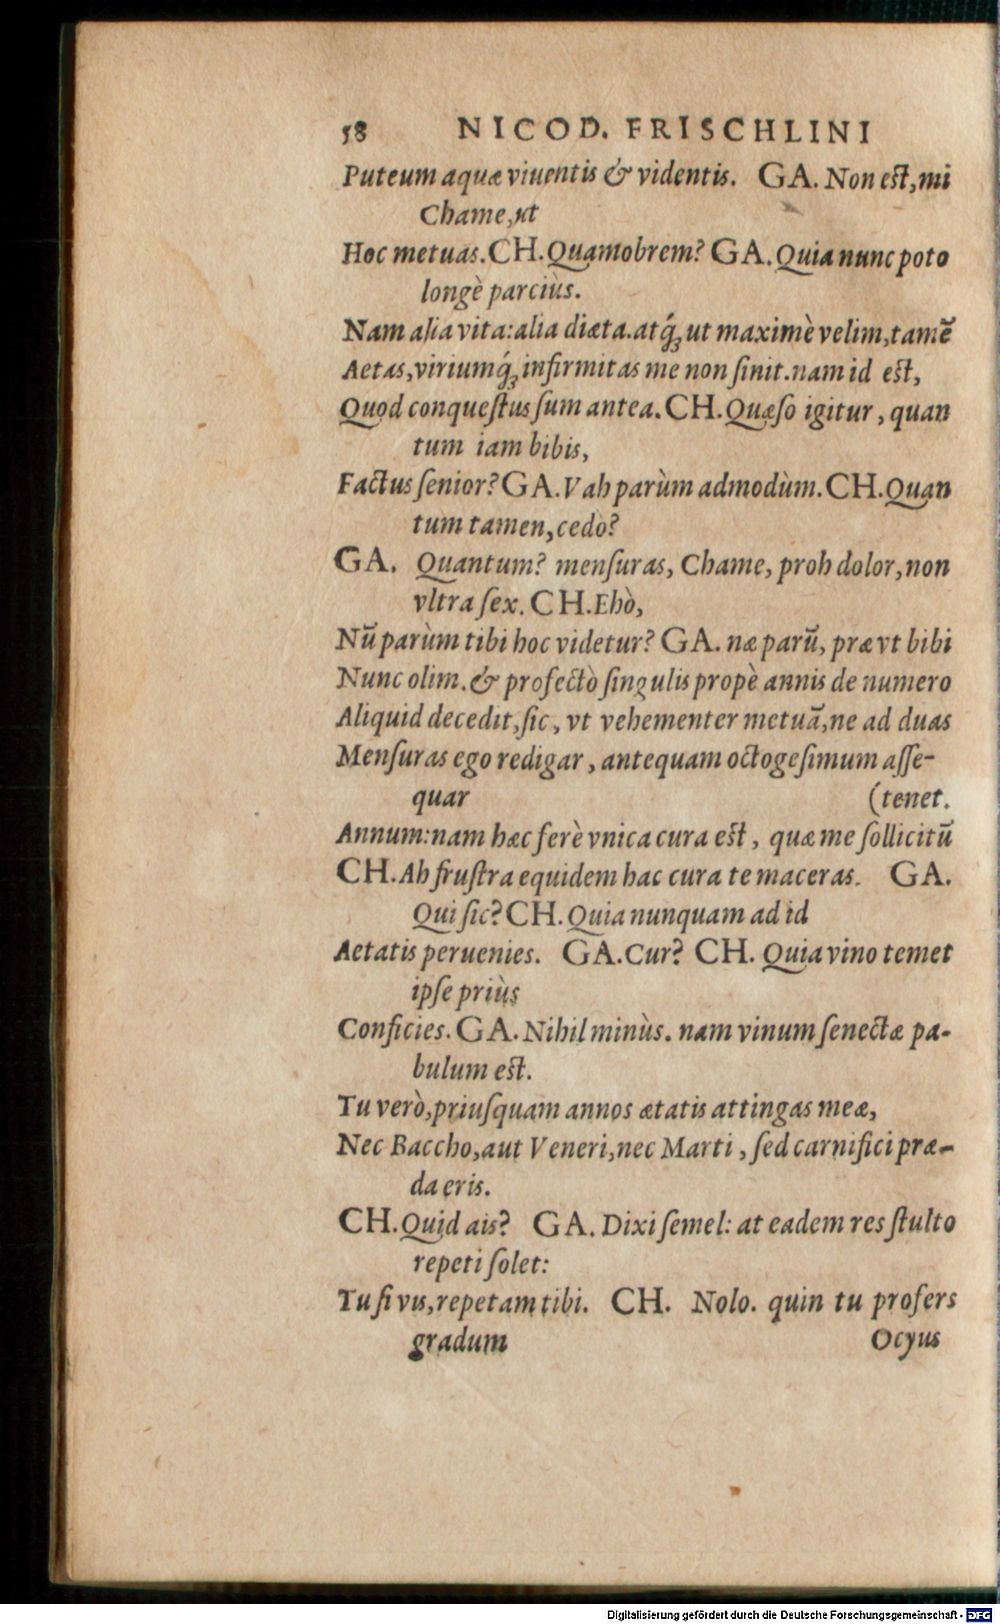 58 NICOD. FRISCHLINI
Puteum aquæ viuentis & videntis. GA. Non est, mi
Chame, ut
Hoc metuas. CH. Quamobrem? GA. Quia nunc poto
longè parciùs.
Nam alia vita: alia diæta. atq́; ut maximè velim, tamē
Aetas, viriumq́; infirmitas me non ſinit. nam id est,
Quod conqueſtus ſum antea. CH. Quæſo igitur, quan
tum iam bibis,
Factus ſenior? GA. Vah parùm admodùm. CH. Quan
tum tamen, cedò?
GA. Quantum? menſuras, Chame, proh dolor, non
vltra ſex. CH. Ehò,
Nū parùm tibi hoc videtur? GA. næ parū, præ vt bibi
Nunc olim. & profectò ſingulis propè annis de numero
Aliquid decedit, ſic, vt vehementer metuā, ne ad duas
Menſuras ego redigar, antequam octogeſimum aſſe-
quar (tenet.
Annum: nam hæc ferè vnica cura est, quæ me ſollicitū
CH. Ah fruſtra equidem hac cura te maceras. GA.
Qui ſic? CH. Quia nunquam ad id
Aetatis peruenies. GA. Cur? CH. Quia vino temet
ipſe priùs
Conficies. GA. Nihil minùs. nam vinum ſenectæ pa-
bulum est.
Tu verò, priuſquam annos ætatis attingas meæ,
Nec Baccho, aut Veneri, nec Marti, ſed carnifici præ-
da eris.
CH. Quid ais? GA. Dixi ſemel: at eadem res ſtulto
repeti ſolet:
Tu ſi vis, repetam tibi. CH. Nolo. quin tu profers
gradum Ocyus
Digitalisierung gefördert durch die Deutsche Forschungsgemeinschaft - DFG